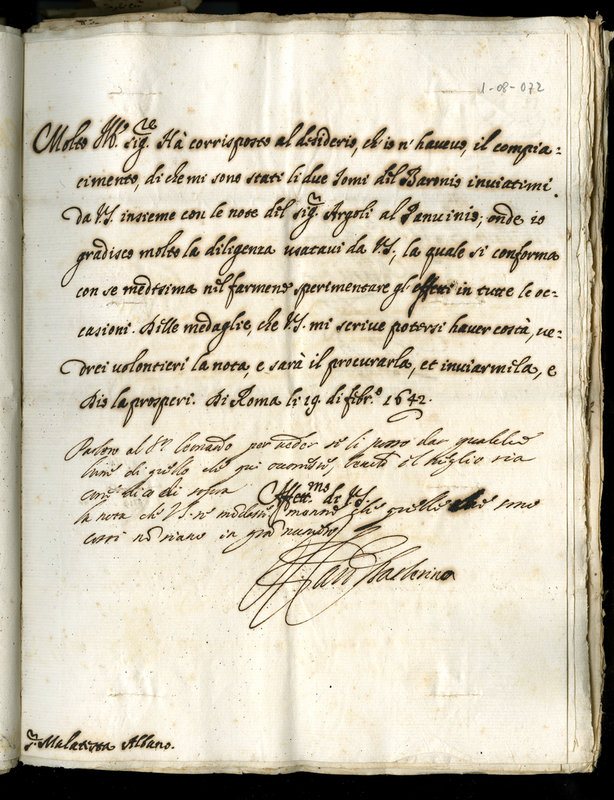 1-08-072
Molto Ill.re Sig.re Hà corrisposto al desiderio, ch'io n'havevo, il compia-
cimento, di che mi sono stati li due Tomi del Baronio inviatimi
da V.S. insieme con le note del Sig.r Argoli al Panvinio; onde io
gradisco molto la diligenza usatavi da V.S., la quale si conforma
con se medesima nel farmene sperimentare gl'effetti in tutte le oc-
casioni. Delle medaglie, che V.S. mi scrive potersi haver costà, ve-
drei volontieri la nota, e sarà il procurarla, et inviarmela, e
Dio la prosperi. Di Roma li 19 di febr.o 1642.
Parlerò al S.r Leonardo per veder se li posso dar qualche
lume di quello che qui
come dico di sopra
Affett.mo di V.S.
la nota che V.S. ne che quelle che sono
costì nō siano in grā numero
Card Barberino
S.r Malatesta Albano.